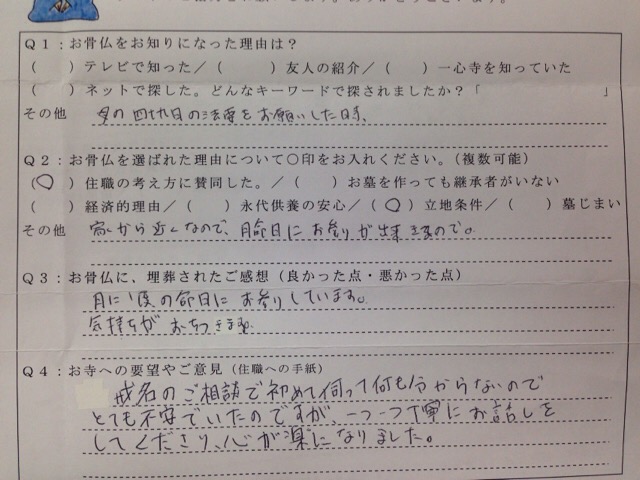 Q1：お骨仏をお知りになった理由は？
（　）テレビで知った／（　）友人の紹介／（　）一心寺を知っていた
（　）ネットで探した。どんなキーワードで探されましたか？「　　　　　　」
その他　の四十九日の法要をお願いした時、
Q2：お骨仏を選ばれた理由について〇印をお入れください。（複数可能）
（〇）住職の考え方に賛同した。／（　）お墓を作っても継承者がいない
（　）経済的理由／（　）永代供養の安心／（〇）立地条件／（　）墓じまい
その他　家から近くなので、月命日にお参りが出来ますので。
Q3：お骨仏に、埋葬されたご感想（良かった点・悪かった点）
月に1度の命日にお参りしています。
気持ちがおちつきます。
Q4：お寺への要望やご意見（住職への手紙）
戒名のご相談で初めて伺って何も分からないので
とても不安でいたのですが、一つ一つ丁寧にお話しを
してくださり、心が楽になりました。